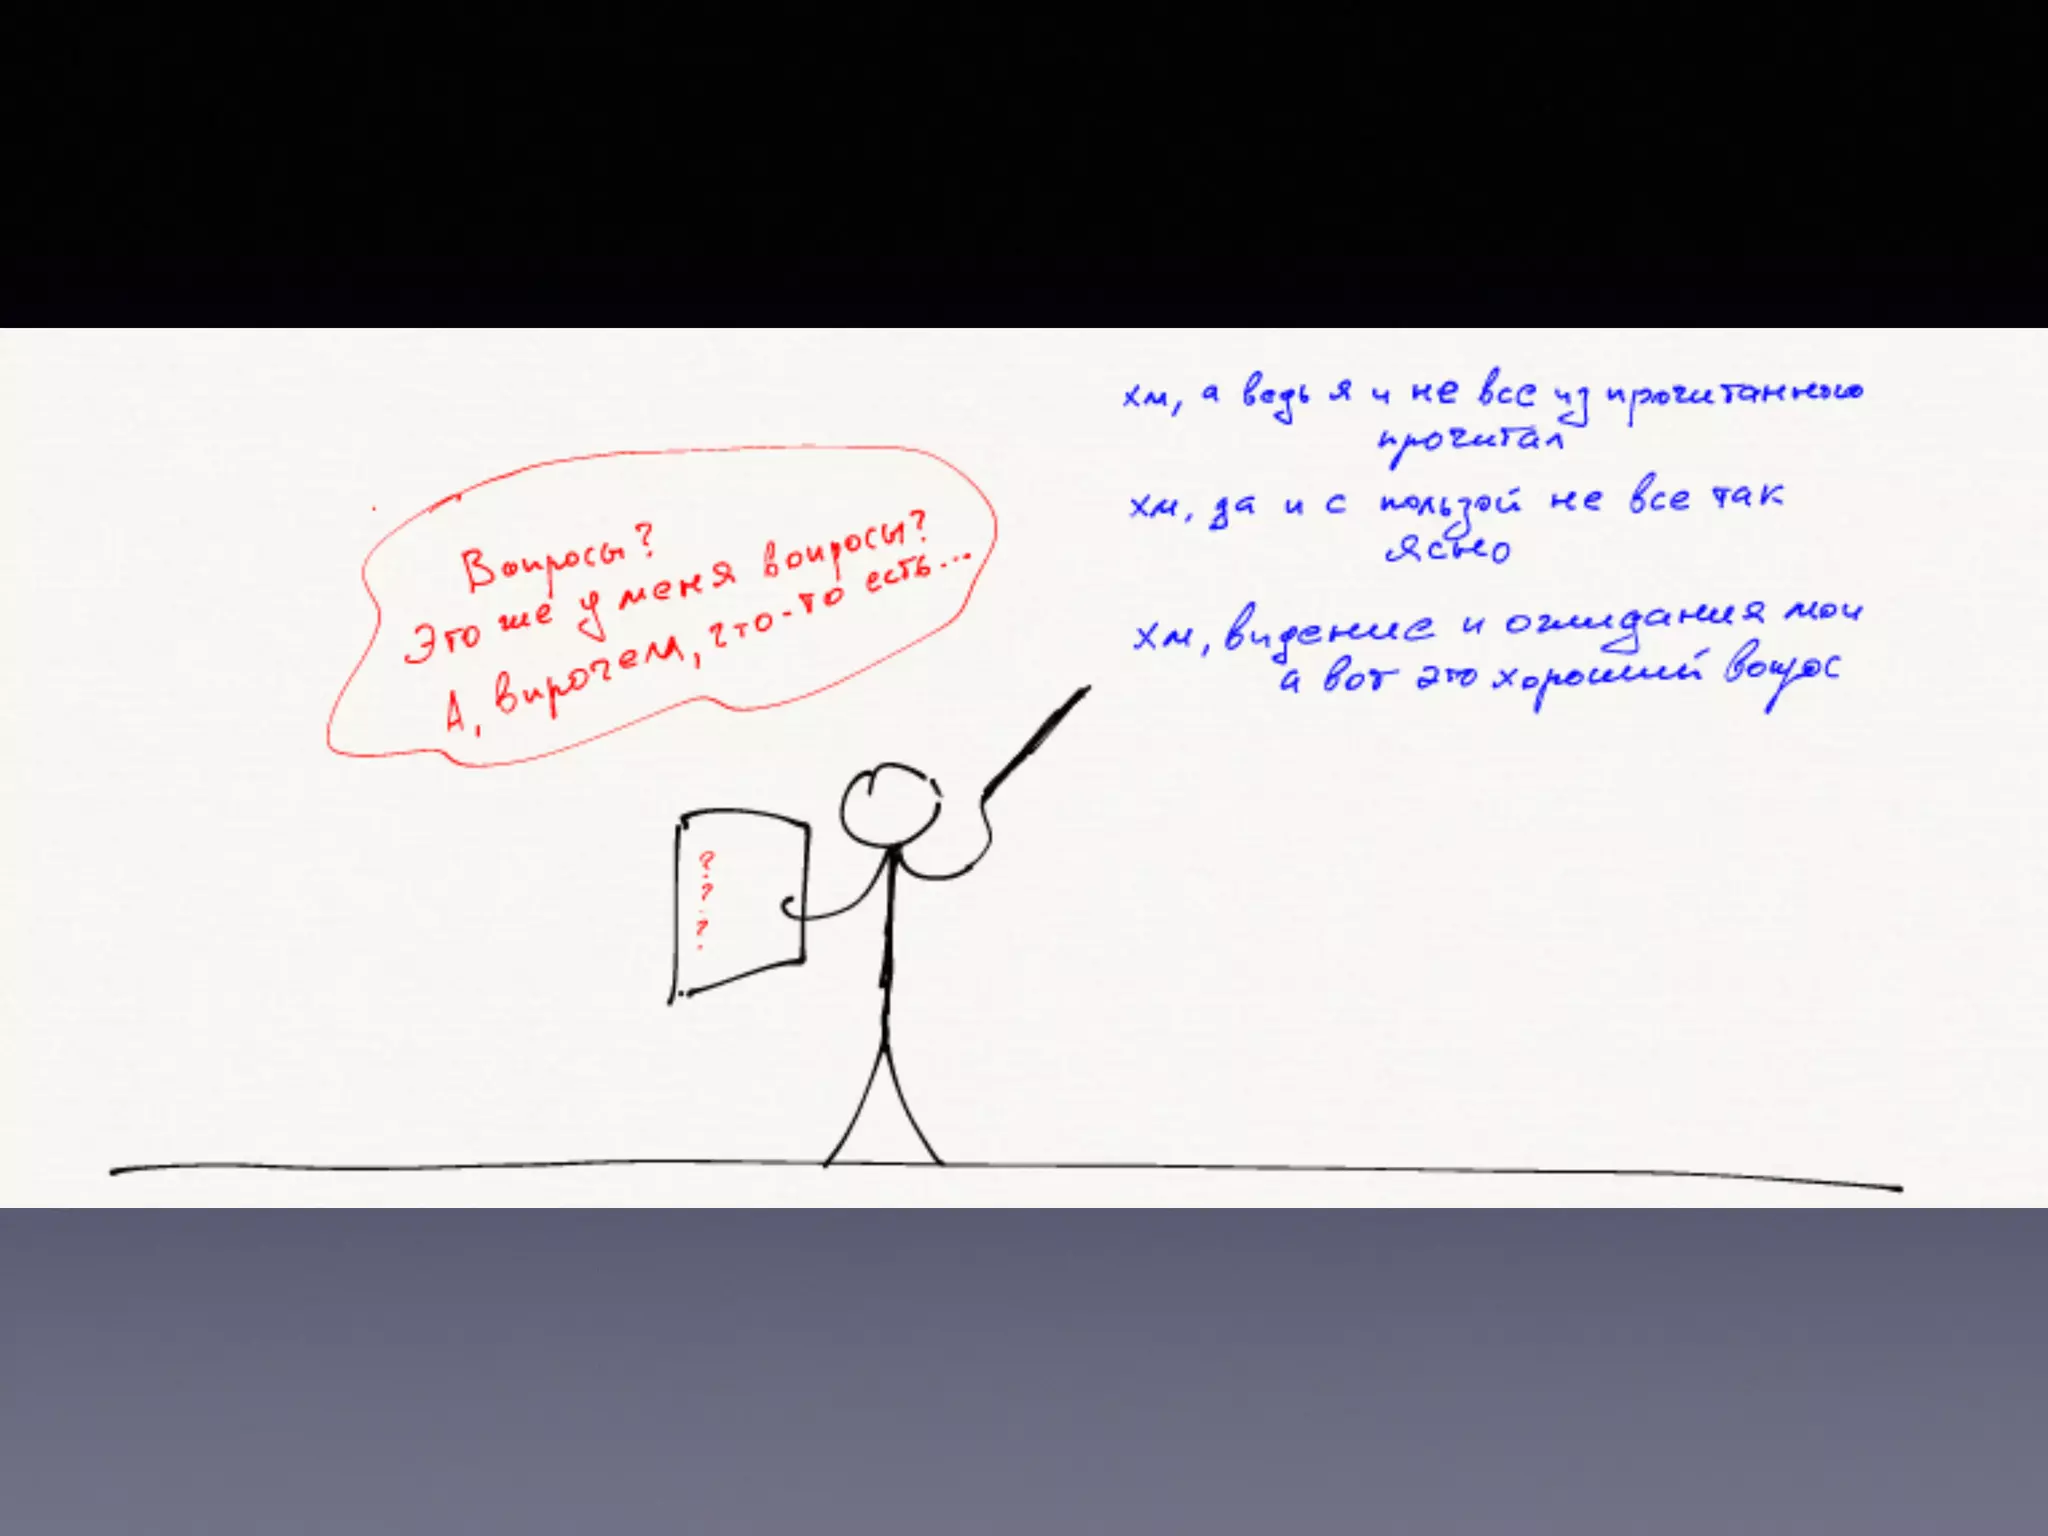 Вопросы?
Это же у меня вопросы?
А, впрочем, что-то есть...
?
?
?
хм, а ведь я и не все из прочитанного
прочитал
хм, да и с пользой не все так
ясно
хм, видение и ожидания мои
а вот это хороший вопрос